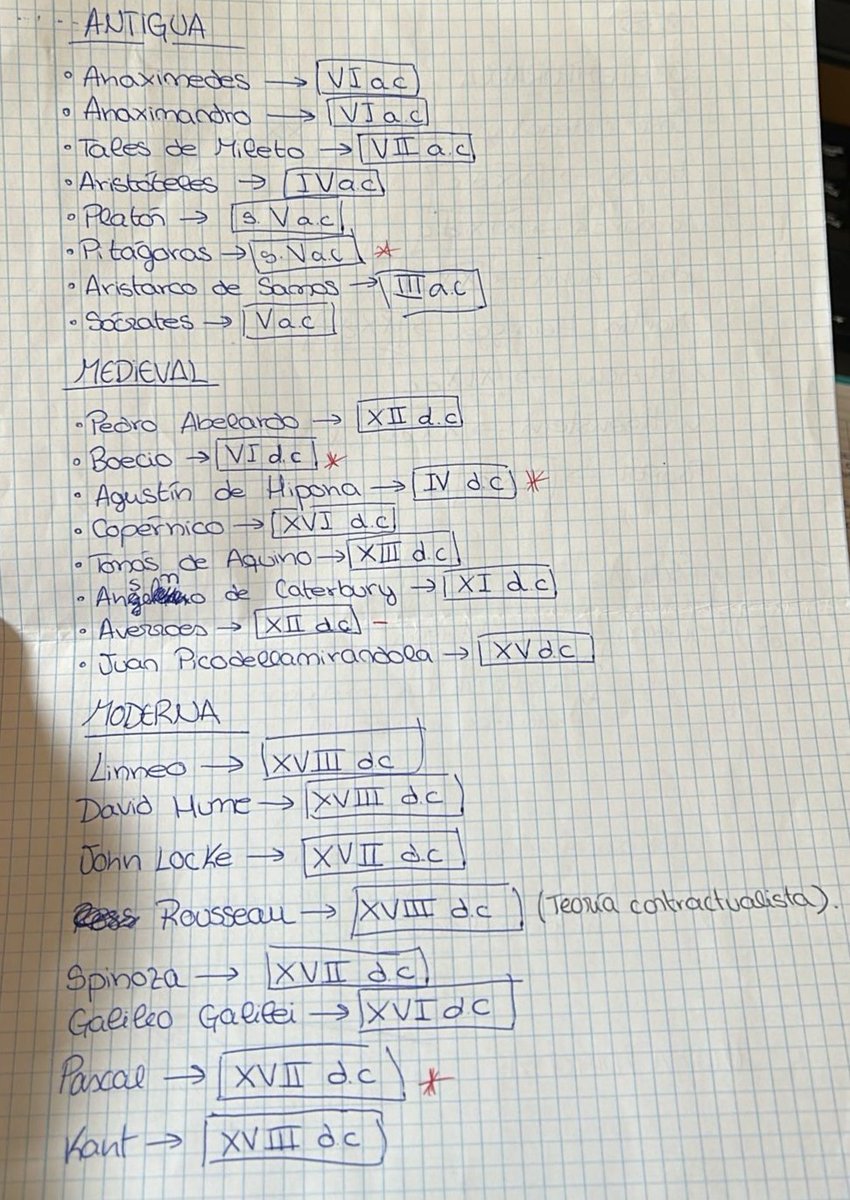 ANTIGUA
• Anaximedes → VI a.c
• Anaximandro → VI a.c
• Tales de Mileto → VII a.c
• Aristóteles → IV a c
• Platón → s. V a c
• Pitágoras → s. V a.c *
• Aristarco de Samos → III a.c
• Sócrates → V a c
MEDIEVAL
• Pedro Abelardo → XII d.c
• Boecio → VI d.c *
• Agustín de Hipona → IV d.c *
• Copérnico → XVI d.c
• Tomás de Aquino → XIII d.c
• Anselmo de Caterbury → XI d.c
• Averroes → XII d.c -
• Juan Picodellamirandola → XV d.c
MODERNA
Linneo → XVIII d c
David Hume → XVIII d.c
John Locke → XVII d.c
Rousseau → XVIII d.c (Teoría contractualista).
Spinoza → XVII d.c
Galileo Galilei → XVI d c
Pascal → XVII d.c *
Kant → XVIII d.c